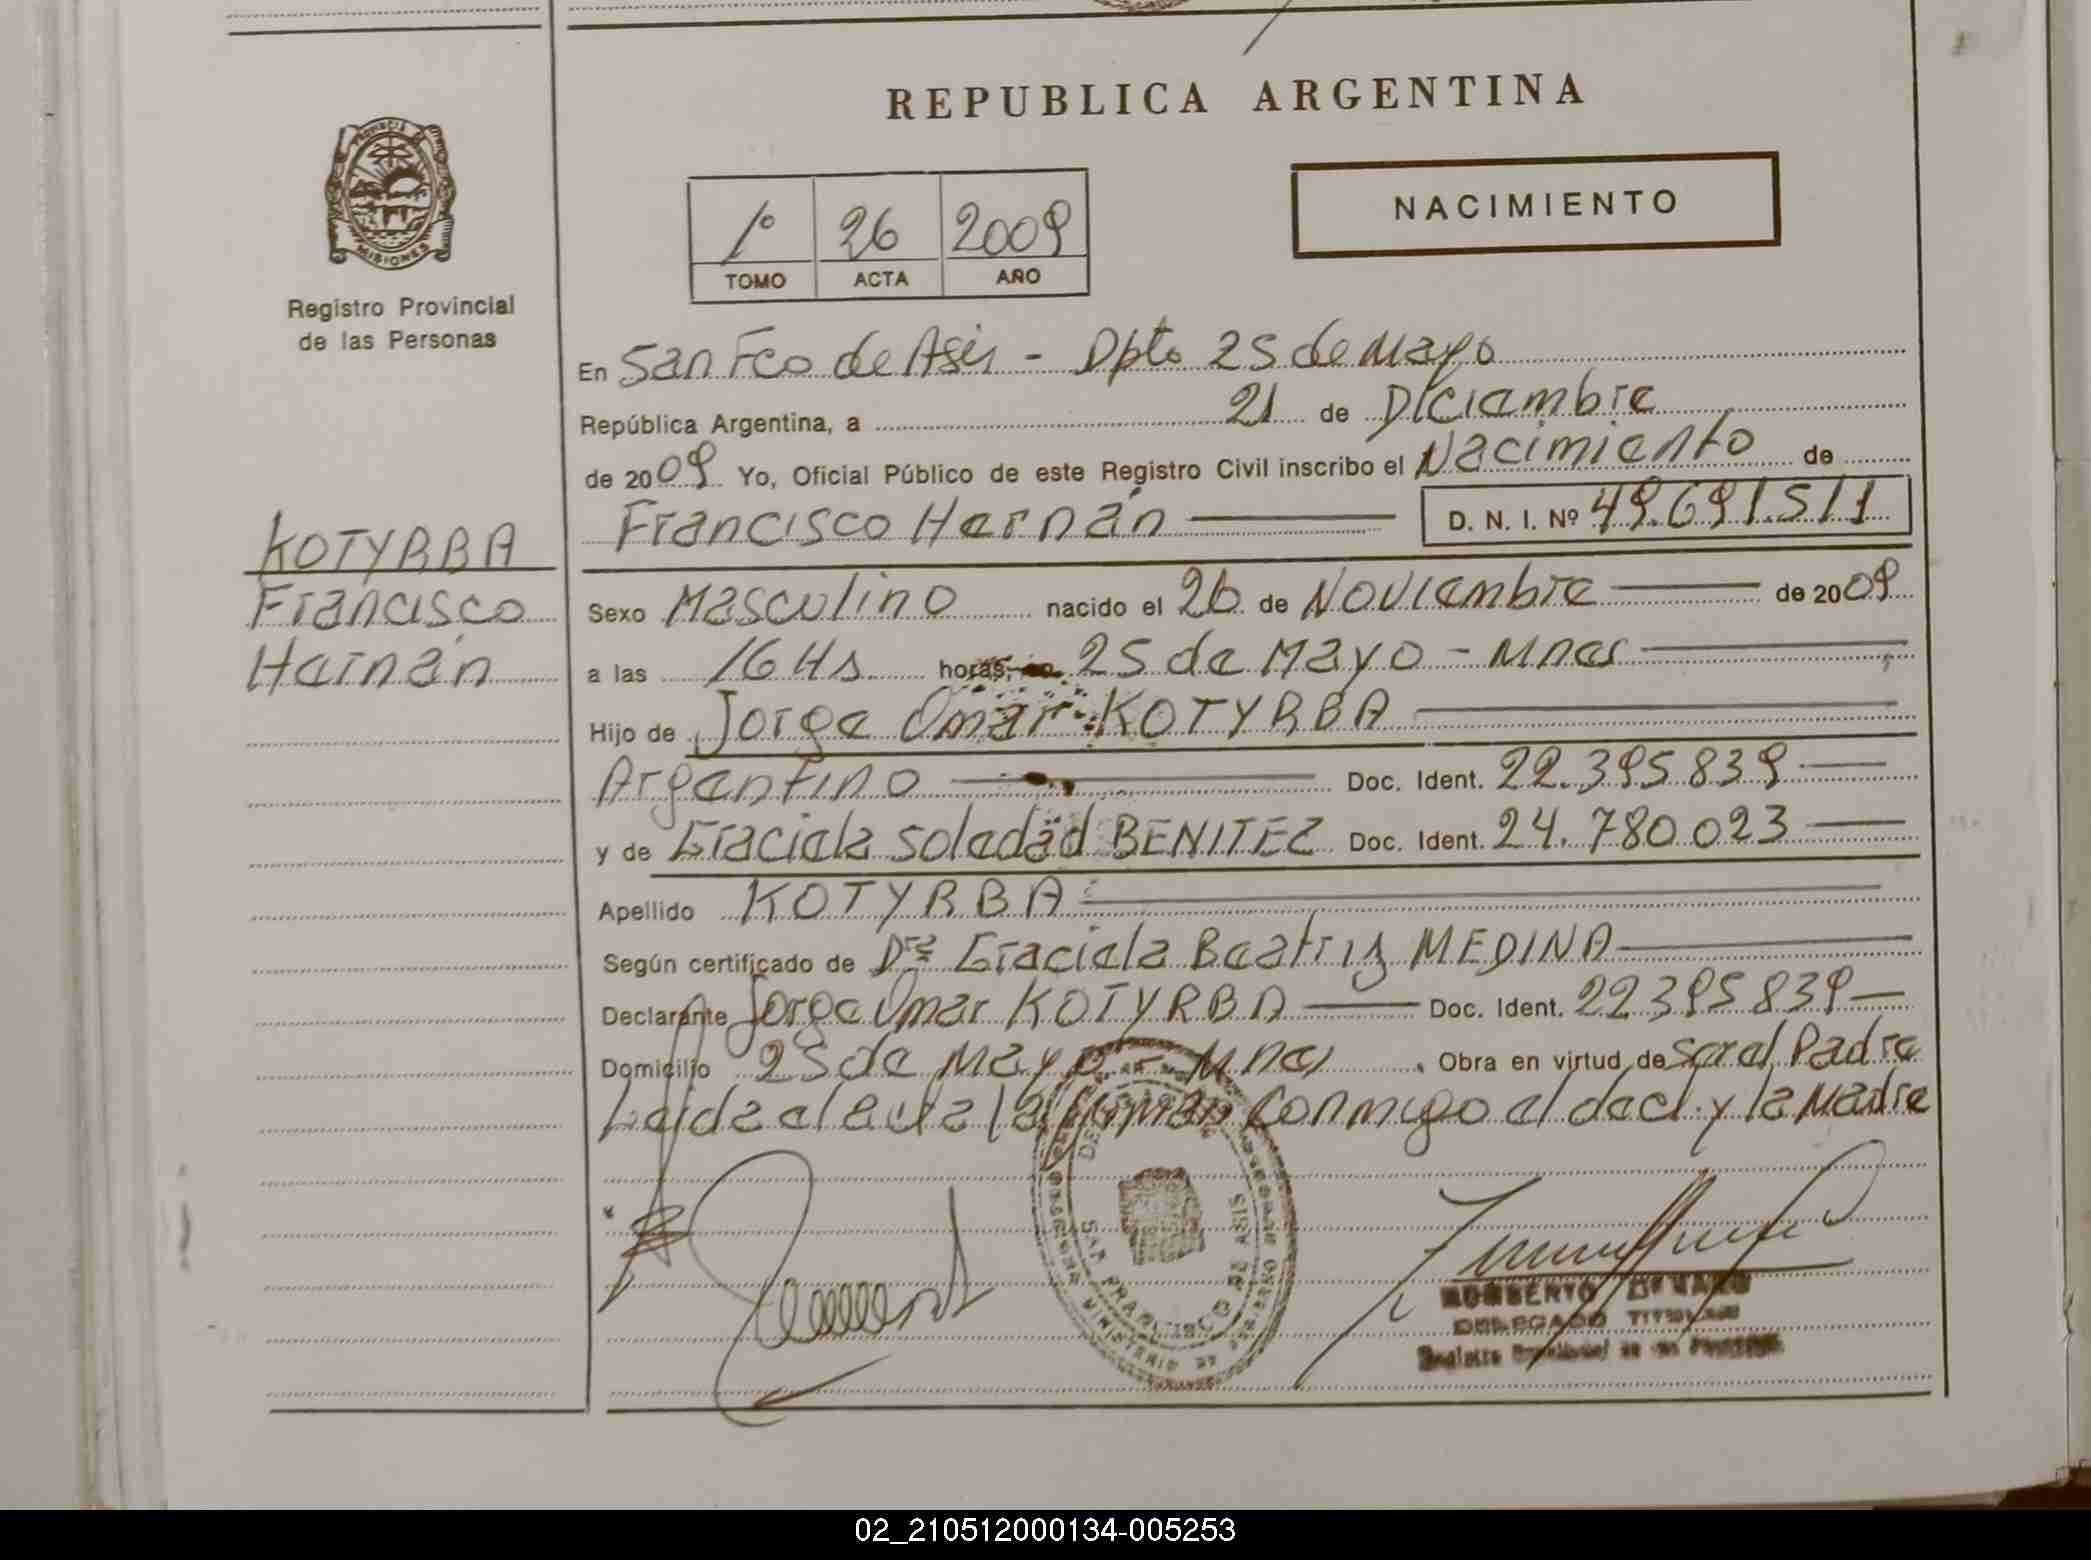 REPUBLICA ARGENTINA
PROVINCIA DE
MISIONES
Registro Provincial
de las Personas
1º 26 2009
TOMO ACTA AÑO
NACIMIENTO
En San Fco de Asis - Dpto 25 de Mayo
República Argentina, a 21 de Diciembre
de 2009 Yo, Oficial Público de este Registro Civil inscribo el Nacimiento de
Francisco Hernán D. N. I. Nº 49.691.511
KOTYRBA
Francisco
Hernán
Sexo Masculino nacido el 26 de Noviembre de 2009
a las 16 Hs horas, en 25 de Mayo - Mnes
Hijo de Jorge Omar KOTYRBA
Argentino Doc. Ident. 22.395.839
y de Graciela Soledad BENITEZ Doc. Ident. 24.780.023
Apellido KOTYRBA
Según certificado de Dra Graciela Beatriz MEDINA
Declarante Jorge Omar KOTYRBA Doc. Ident. 22.395.839
Domicilio 25 de Mayo Mnes. Obra en virtud de ser el Padre
Leida el acta la firman conmigo el decl. y la Madre
SAN FRANCISCO DE ASIS
MINISTERIO DE
DELEGADO TITULAR
Registro Provincial de las Personas
02_210512000134-005253